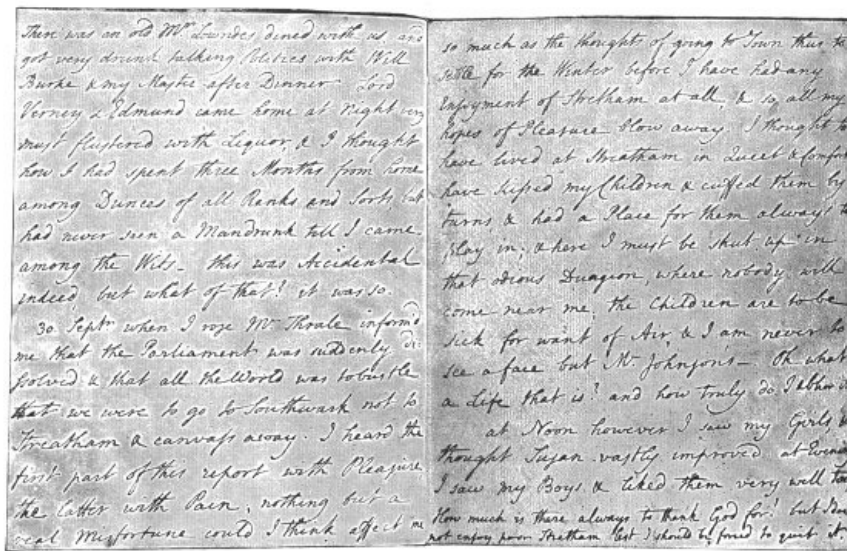 There was an old Mr Lowndes dined with us and
got very drunk talking Politics with Will
Burke & my Master after Dinner. Lord
Verney & Edmund came home at Night very
much flustered with Liquor, & I thought
how I had spent three Months from home
among Dunces of all Ranks and Sorts, but
had never seen a Man drunk till I came
among the Wits— this was Accidental
indeed, but what of that? it was so.
30. Septr when I rose Mr Thrale inform'd
me that the Parliament was suddenly dis
solved & that all the World was to bustle
that we were to go to Southwark not to
Streatham & canvass away. I heard the
first part of this report with Pleasure
the latter with Pain, nothing but a
real Misfortune could I think affect me
so much as the thoughts of going to Town thus to
settle for the Winter before I have had any
Enjoyment of Stretham at all, & so all my
hopes of Pleasure blow away. I thought to
have lived at Streatham in Quiet & Comfort
have kissed my Children & cuffed them by
turns, & had a Place for them always to
play in; & here I must be shut up in
that odious Dungeon, where nobody will
come near me, the Children are to be
sick for want of Air, & I am never to
see a face but Mr Johnson's— Oh what
a Life that is! and how truly do I abhor it
at Noon however I saw my Girls &
thought Susan vastly improved, at Evening
I saw my Boys & liked them very well too,
How much is there always to thank God for! but I dare
not enjoy poor Stretham lest I should be forced to quit it.